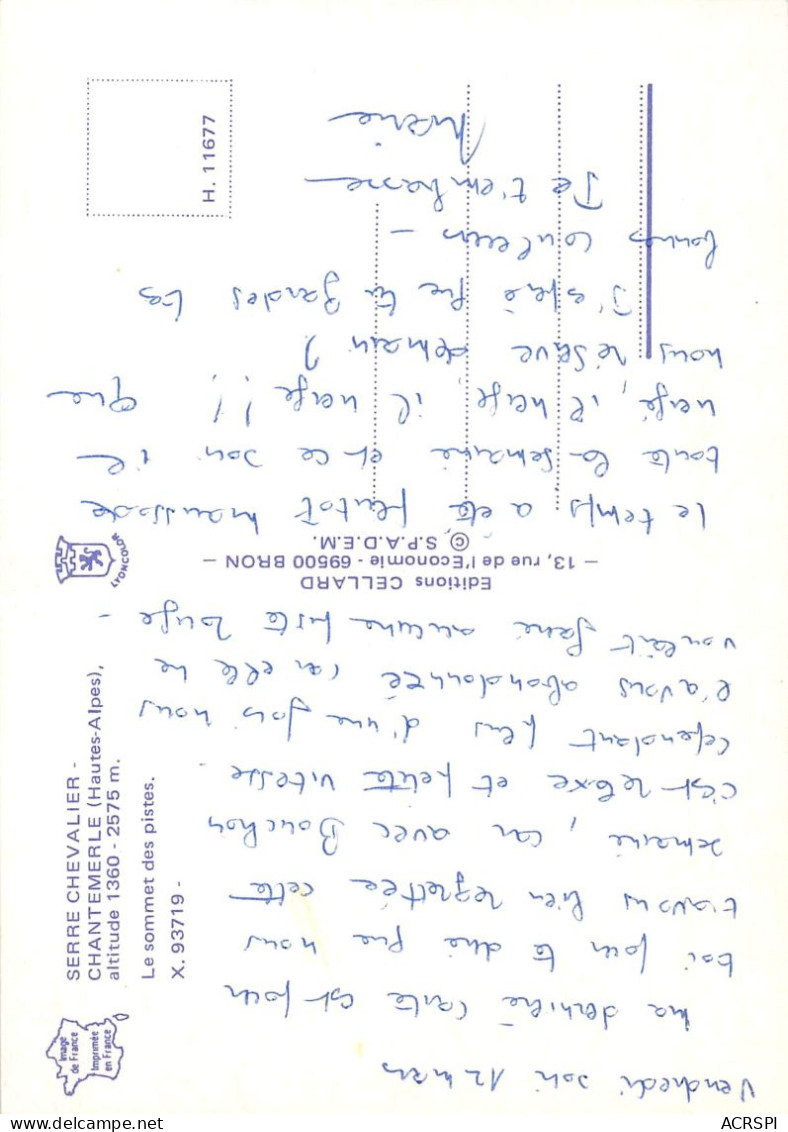 SERRE CHEVALIER -
CHANTEMERLE (Hautes-Alpes),
altitude 1360 - 2575 m.
Le sommet des pistes.
X. 93719 -
Image
de France
Imprimée
en France
LYONCOLOR
H. 11677
Editions CELLARD
– 13, rue de l'Economie - 69500 BRON –
© S.P.A.D.E.M.
Vendredi soir 12 mars
Ma dernière carte est pour
toi pour te dire que nous
t'avons bien regrettée cette
semaine, car avec Bouchon
c'est relaxe et petite vitesse
cependant plus d'une fois nous
l'avons abandonnée car elle ne
voulait faire aucune piste rouge -
Le temps a été plutôt maussade
toute la semaine et ce soir il
neige, il neige il neige !! Que
nous réserve demain ?
J'espère que tu gardes tes
bonnes couleurs -
Je t'embrasse
Marie
ACRSPI